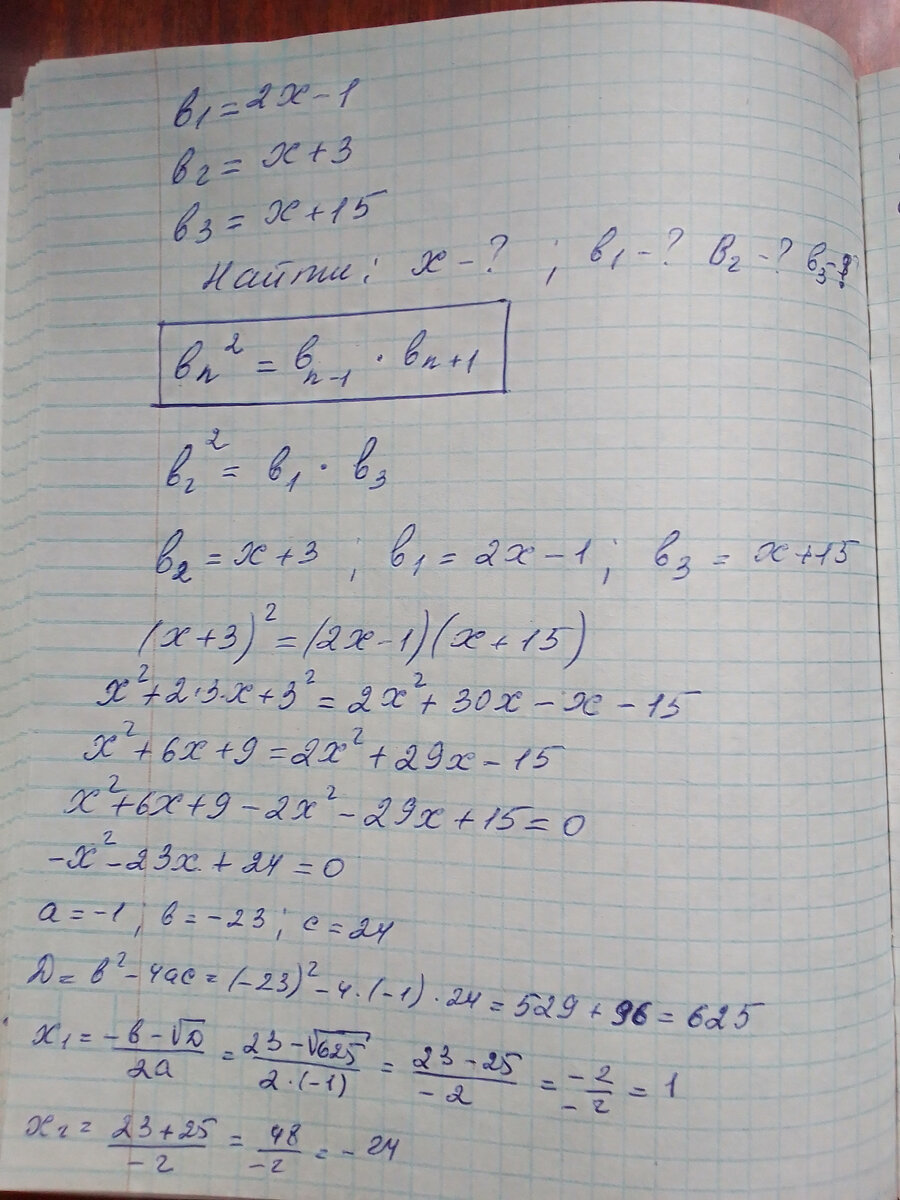 в₁ = 2x - 1
в₂ = x + 3
в₃ = x + 15
Найти: x - ? ; в₁ - ? в₂ - ? в₃ - ?
вₙ² = вₙ₋₁ · вₙ₊₁
в₂² = в₁ · в₃
в₂ = x + 3 ; в₁ = 2x - 1 ; в₃ = x + 15
(x + 3)² = (2x - 1)(x + 15)
x² + 2·3·x + 3² = 2x² + 30x - x - 15
x² + 6x + 9 = 2x² + 29x - 15
x² + 6x + 9 - 2x² - 29x + 15 = 0
-x² - 23x + 24 = 0
a = -1 ; в = -23 ; c = 24
D = в² - 4ac = (-23)² - 4·(-1)·24 = 529 + 96 = 625
x₁ = (-в - √D)/(2a) = (23 - √625)/(2·(-1)) = (23 - 25)/(-2) = (-2)/(-2) = 1
x₂ = (23 + 25)/(-2) = 48/(-2) = -24